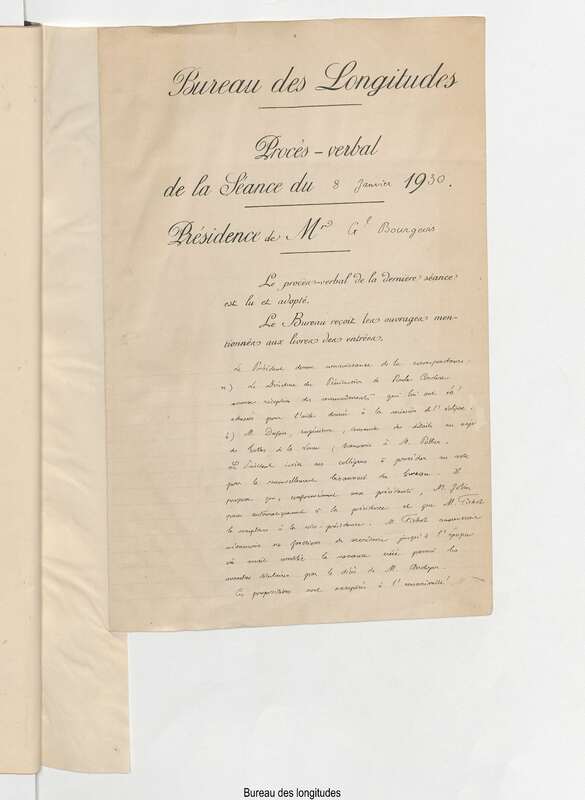 Bureau des Longitudes
Procès-verbal
de la Séance du 8 Janvier 1930.
Présidence de Mr Gl Bourgeois
Le procès-verbal de la dernière séance
est lu et adopté.
Le Bureau reçoit les ouvrages men-
tionnés aux livres des entrées.
Le Président donne connaissance de la correspondance.
a) Le Directeur du Pénitencier de Poulo Condore
accuse réception des qui lui ont été
adressés pour l'aide donnée à la mission de l'éclipse.
b) M. ingénieur, demande des détails au sujet
de Tables de la Lune; transmis à M.
Le Président invite ses collègues à procéder au vote
pour le renouvellement bisannuel du bureau. Il
propose que, conformément aux précédents, M. Jobin
passe automatiquement à la présidence et que M. Fichot
le remplace à la vice-présidence. M. Fichot
néanmoins ses fonctions de secrétaire jusqu'à l'époque
où sera comblée la vacance créée parmi les
membres titulaires par le décès de M. Andoyer.
Ces propositions sont acceptées à l'unanimité.
Bureau des longitudes